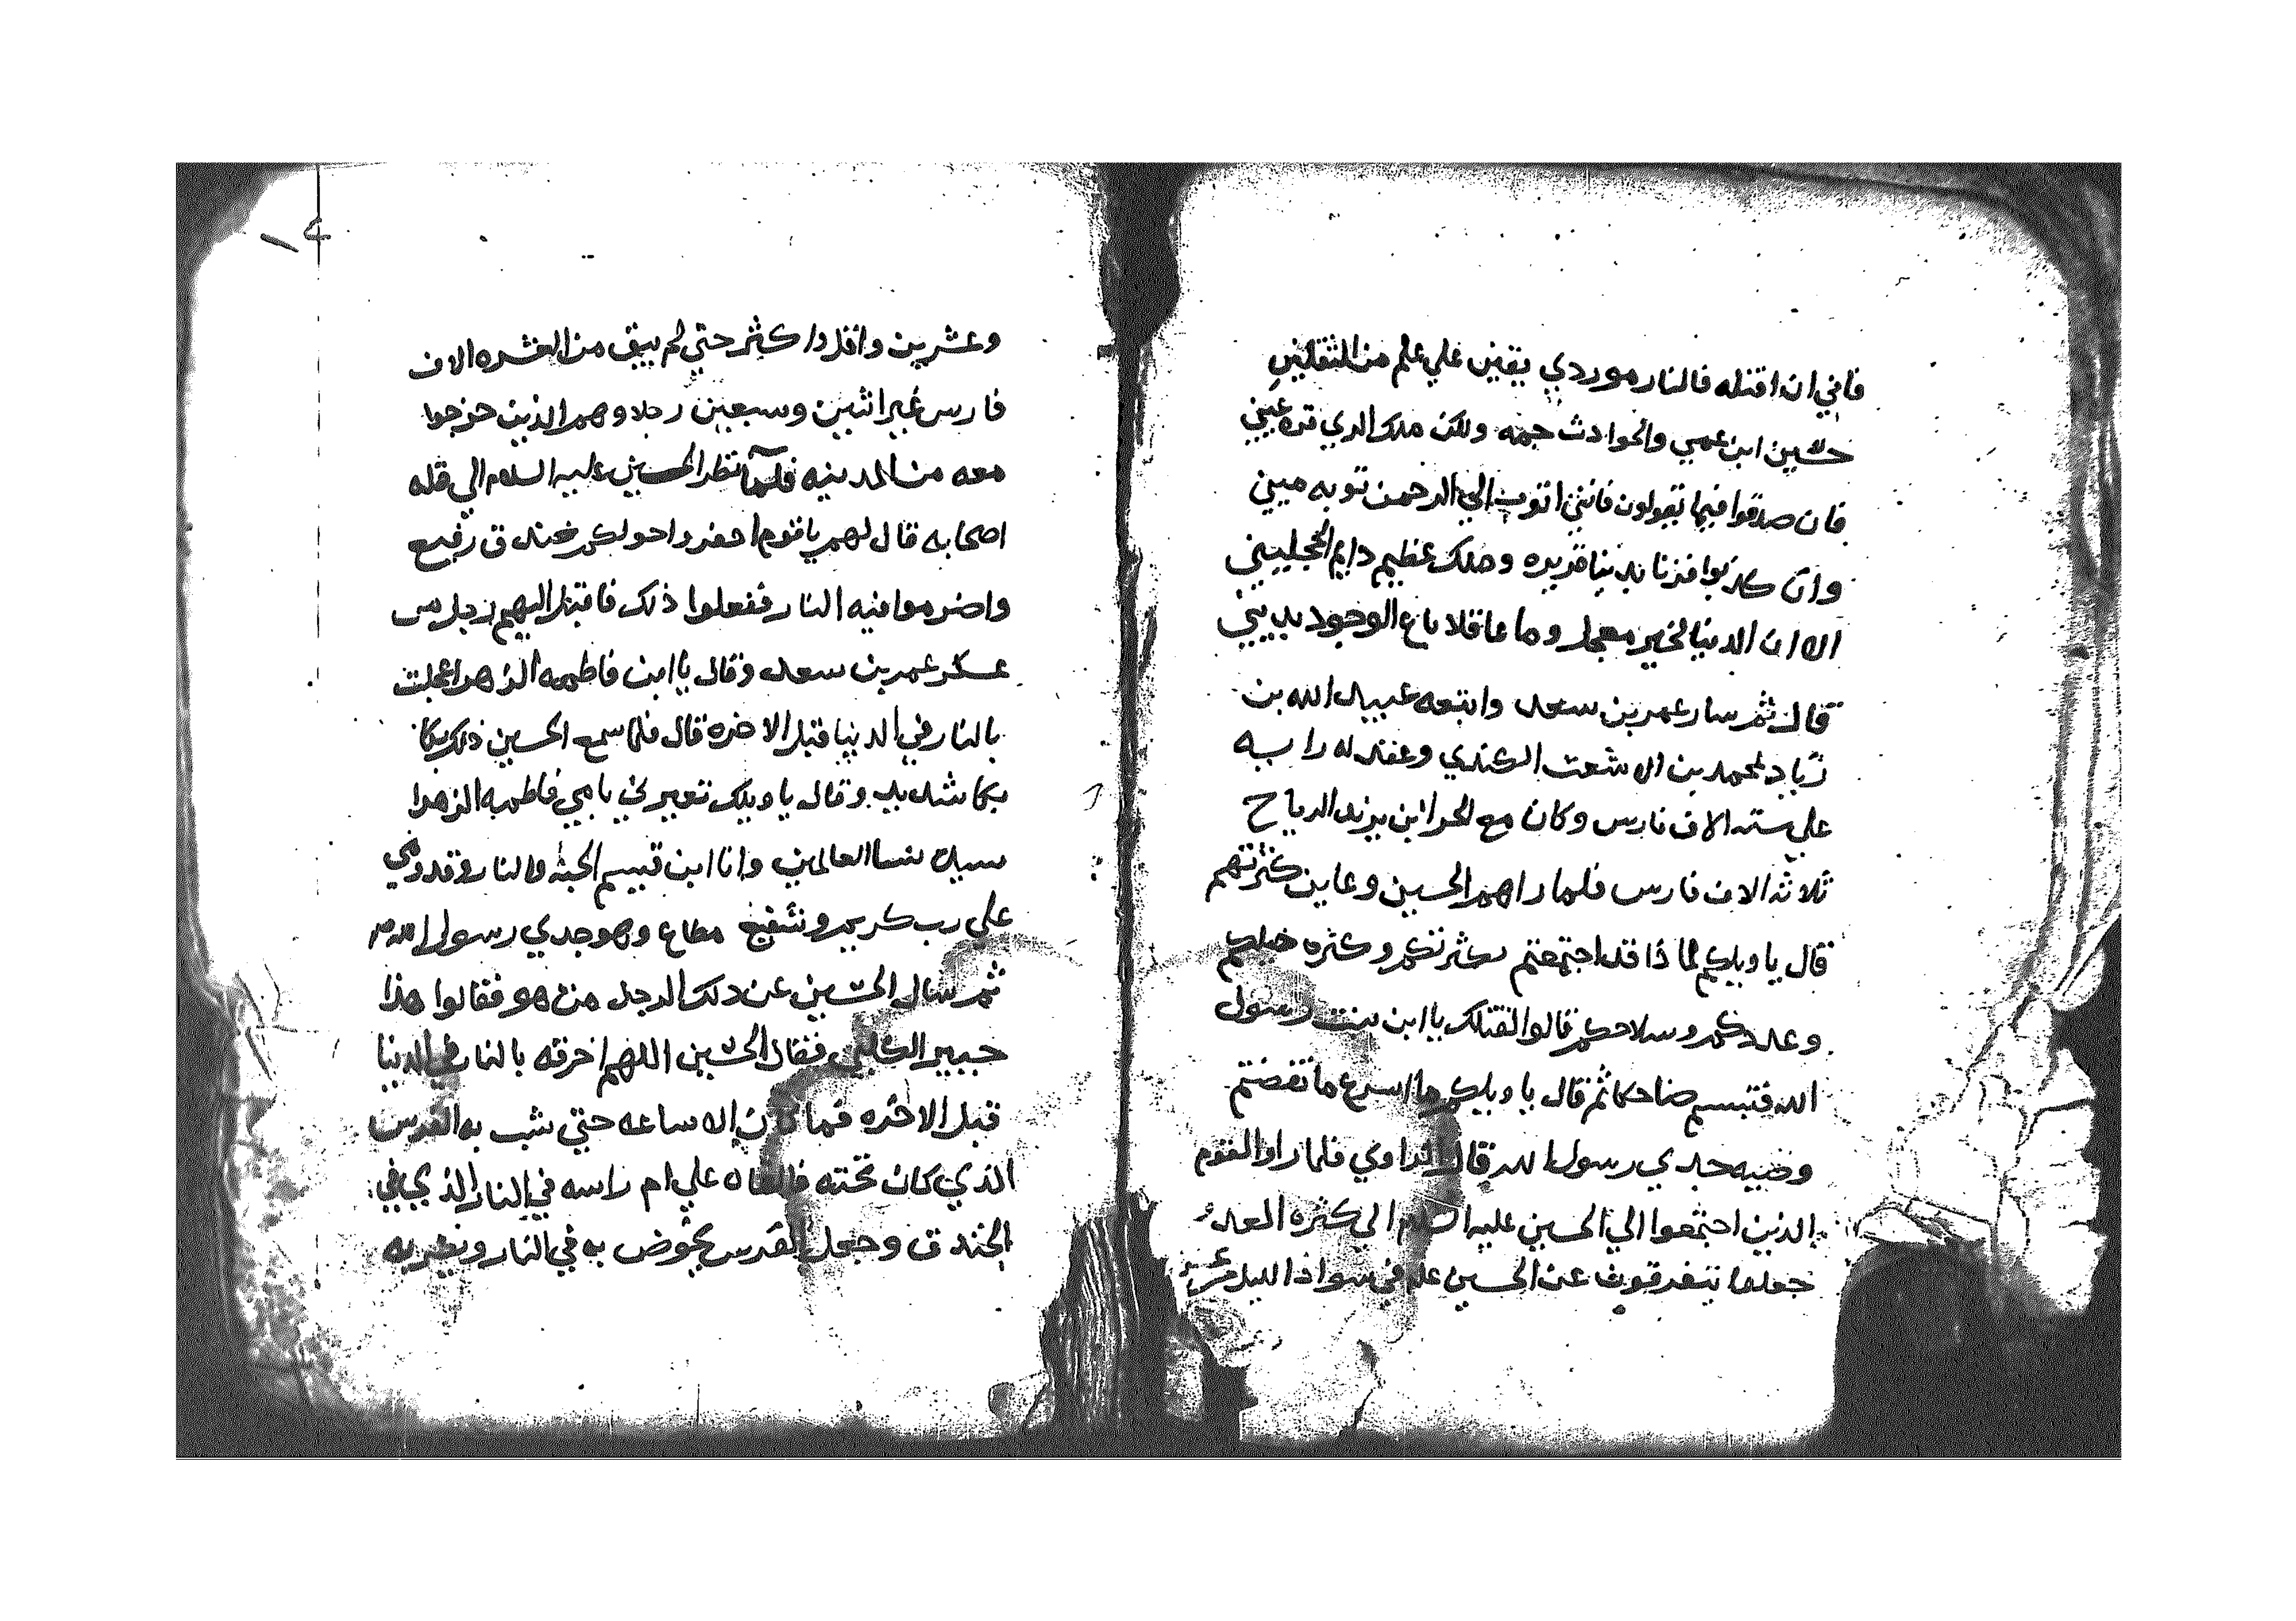 فاني ان اقتله فالنار موردي يقين علي علم من الثقلين
حسين ابن عمي والحوادث جمه ولكن ملك الري قره عيني
فان صدقوا فيما يقولون فانني اتوب الي الرحمن توبه ميني
وان كذبوا فزنا بدنيا فريده وملك عظيم دايم الحجليني
الا ان الدنيا لخير معجل وما عاقلا باع الوجود بديني
قال ثم سار عمر بن سعد واتبعه عبيد الله بن
زياد لمحمد بن الاشعث الكندي وعقد له رايه
علي سته الاف فارس وكان مع الحر ابن يزيد الرياح
ثلاثه الاف فارس فلما راهم الحسين وعاين كثرتهم
قال يا ويلكم لما ذا قد اجتمعتم بكثرتكم وكثره خيلكم
وعددكم وسلاحكم قالوا لقتلك يا ابن بنت رسول
الله فتبسم ضاحكا ثم قال يا ويلكم ما اسرع ما نقضتم
وصيه جدي رسول الله قال الراوي فلما راوا القوم
الذين اجتمعوا الي الحسين عليه السلام الي كثره العدد
جعلوا يتفرقون عن الحسين علم في سواد الليل عشره
وعشرين واقل واكثر حتي لم يبق من العشره الاف
فارس غير اثنين وسبعين رجلا وهم الذين خرجوا
معه من المدينه فلما نظر الحسين عليه السلام الي قله
اصحابه قال لهم يا قوم احفروا حولكم خندق رفيع
واضرموا فيه النار ففعلوا ذلك فاقبل اليهم رجل من
عسكر عمر بن سعد وقال يا ابن فاطمه الزهرا عجلت
بالنار في الدنيا قبل الاخره قال فلما سمع الحسين ذلك بكا
بكا شديد وقال يا ويلك تعيرني بامي فاطمه الزهرا
سيده نسا العالمين وانا ابن قسيم الجنه والنار وقدومي
علي رب كريم وشفيع مطاع وهو جدي رسول الله
ثم سال الحسين عن ذلك الرجل من هو فقالوا هذا
جبير الكلبي فقال الحسين اللهم احرقه بالنار في الدنيا
قبل الاخره فما كان الا ساعه حتي شب به الفرس
الذي كان تحته فالقاه علي ام راسه في النار الذي في
الخندق وجعل الفرس يخوض به في النار ويضربه